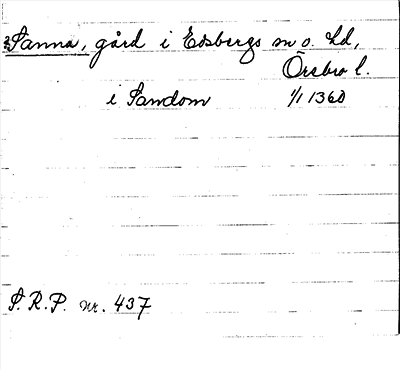 Sanna, gård i Edsbergs sn o. hd,
Örebro l.
i Sandom 1/1 1360
S.R.P. nr. 437